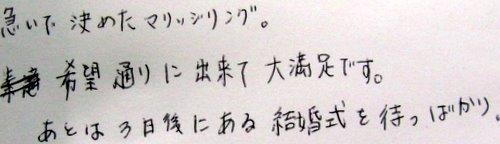 急いで決めたマリッジリング。
希望通りに出来て大満足です。
あとは3日後にある結婚式を待つばかり。